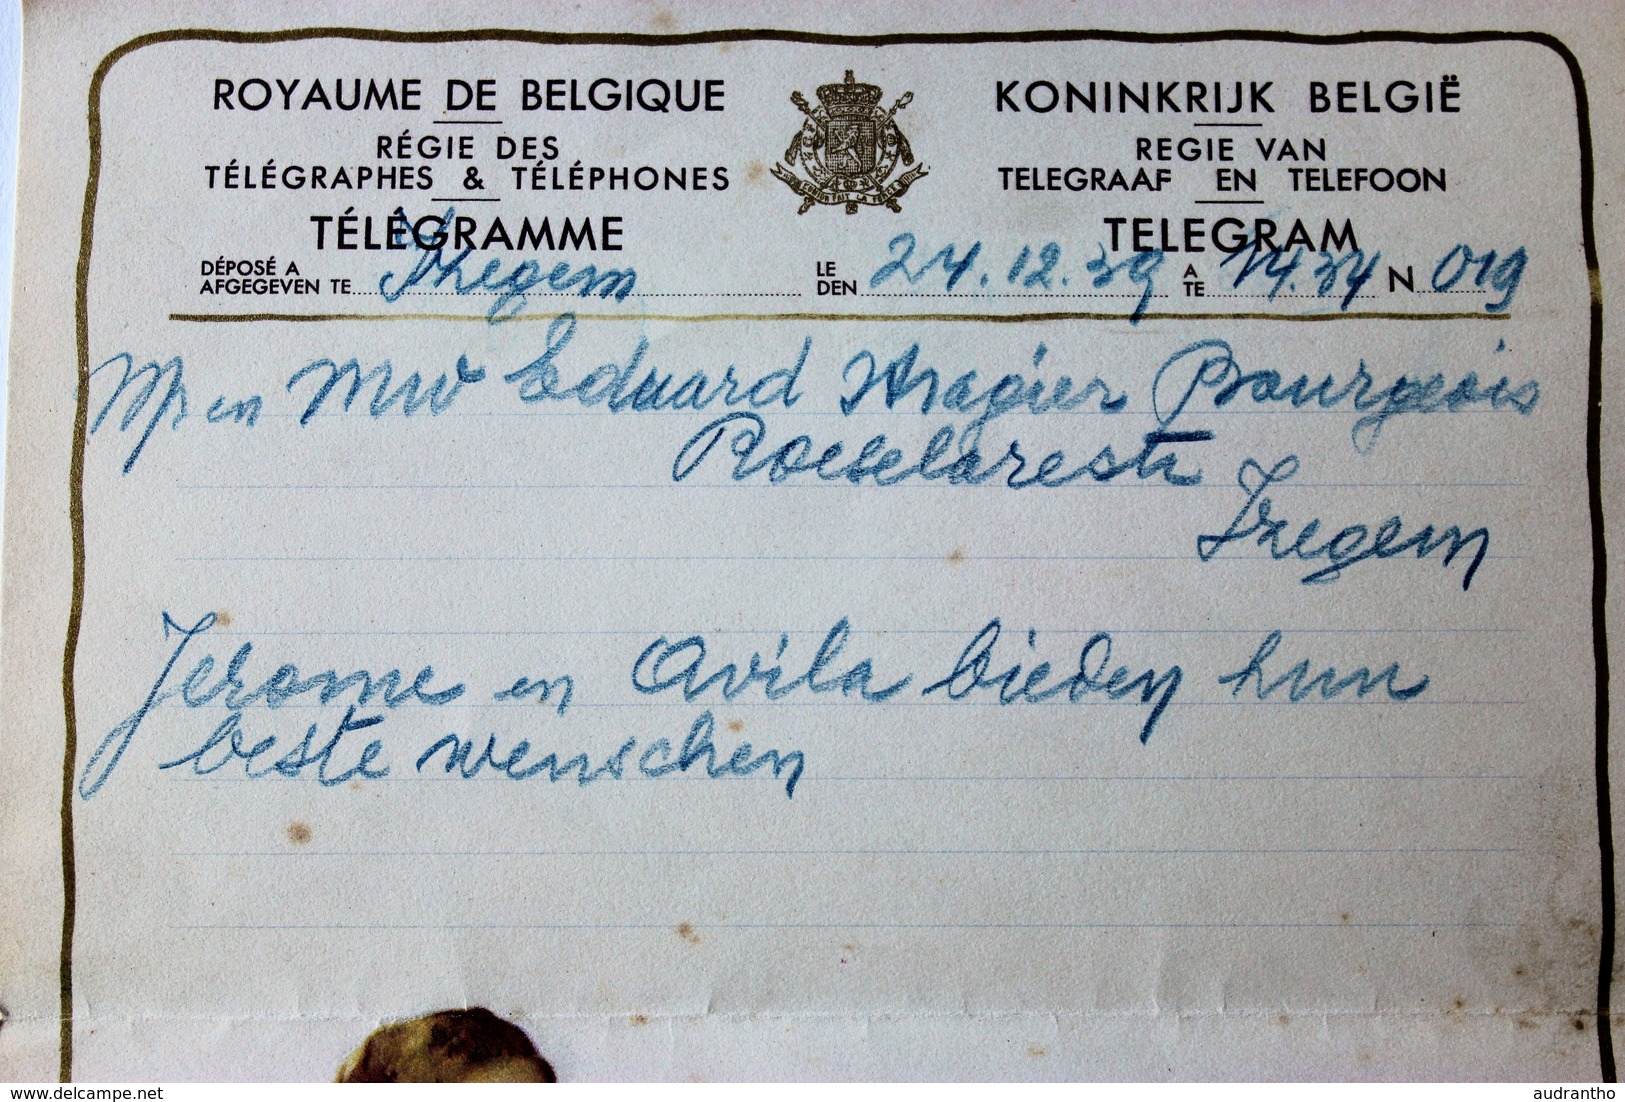 ROYAUME DE BELGIQUE
RÉGIE DES
TÉLÉGRAPHES & TÉLÉPHONES
TÉLÉGRAMME
KONINKRIJK BELGIË
REGIE VAN
TELEGRAAF EN TELEFOON
TELEGRAM
DÉPOSÉ A
AFGEGEVEN TE Izegem
LE
DEN 24.12.39
A
TE 14.34 N 019
Mr en Mw Eduard Stragier Bourgeois
Roeselarestr
Izegem
Jerome en Avila bieden hun
beste wenschen
delcampe.net
audrantho